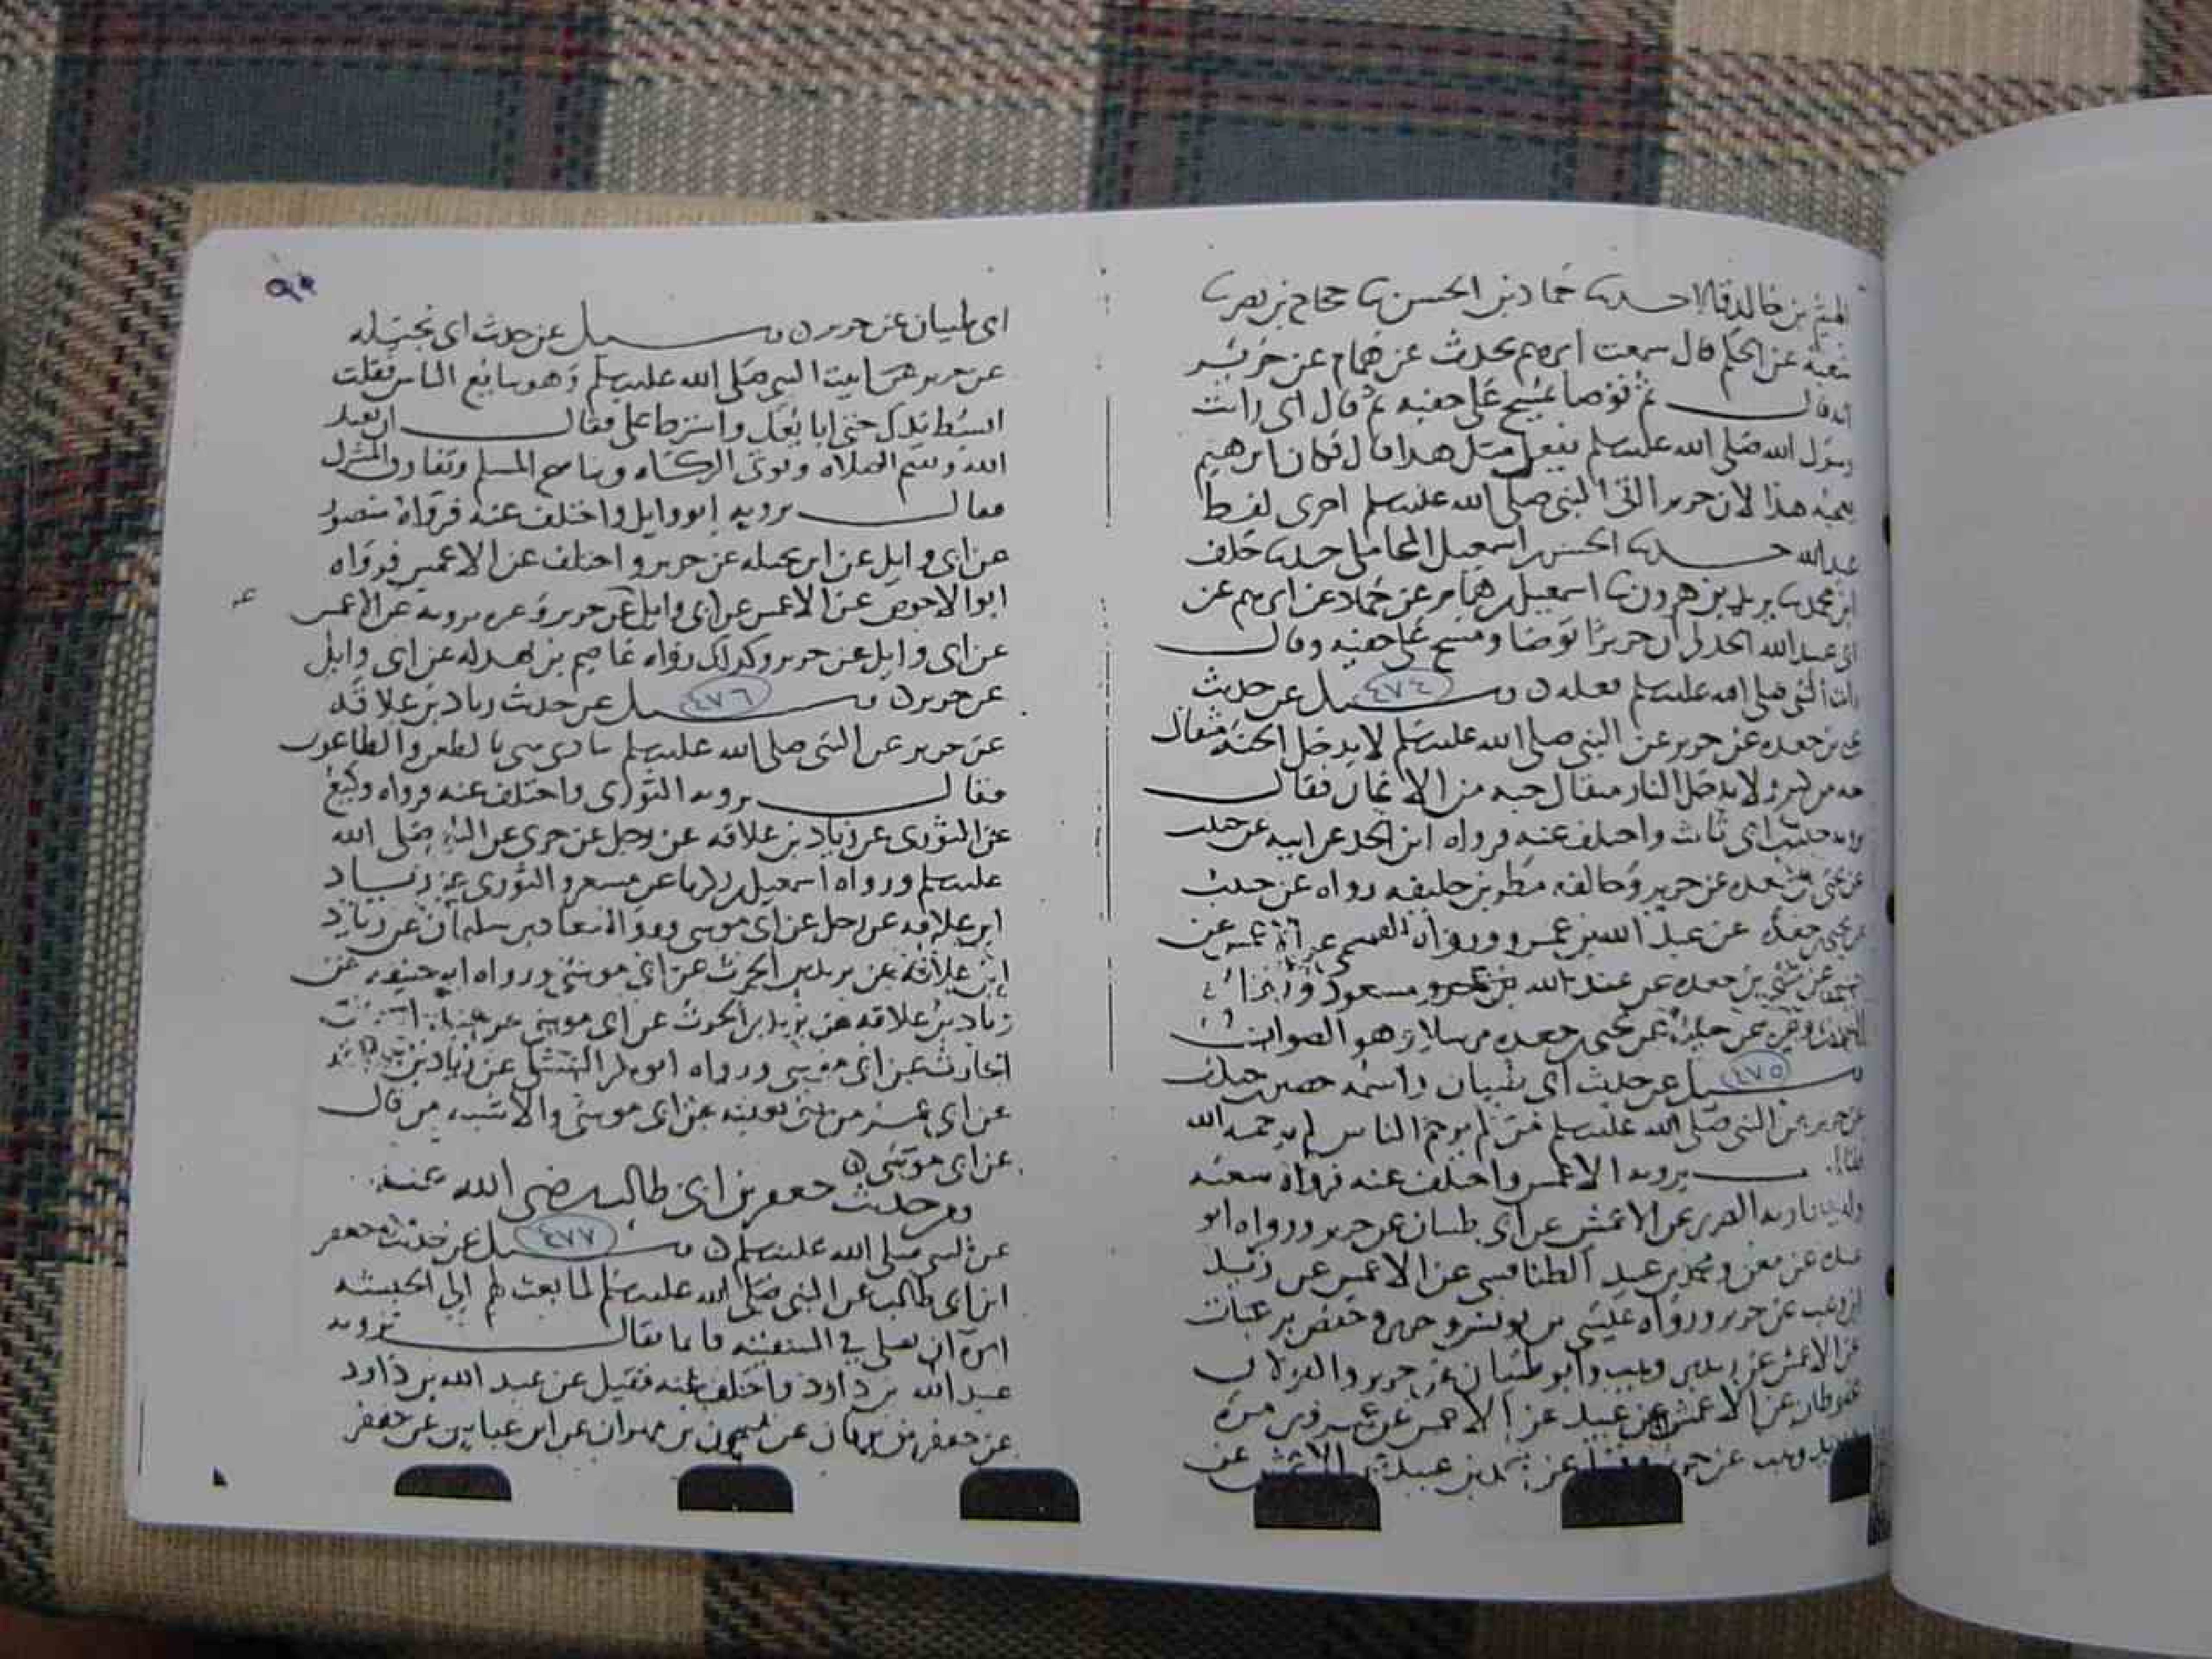 الهيثم بن خالد قالا حدثنا حماد بن الحسن ثنا حجاج بن نصر ثنا
شعبة عن الحكم قال سمعت ابرهيم يحدث عن همام عن جرير
انه قال ثم توضا ومسح على خفيه ثم قال اى رايت
رسول الله صلى الله عليه وسلم يفعل مثل هذا قال فكان ابرهيم
يعجبه هذا لان جريرا اتى النبى صلى الله عليه وسلم اخرى لفظ
عبد الله حدثنا الحسين بن اسمعيل المحاملى حدثنا خلف
ابن محمد ثنا يزيد بن هرون ثنا اسمعيل عن حماد عن ابرهيم عن
ابى عبد الله الجدلى ان جريرا توضا ومسح على خفيه وقال
رايت النبى صلى الله عليه وسلم فعله ٥ وسيل ٤٧٤ عن حديث
بن جعده عن جرير عن النبى صلى الله عليه وسلم لا يدخل الجنة مثقال
حبه من كبر ولا يدخل النار مثقال حبه من الايمان فقال
حبيب بن ابى ثابت واختلف عنه فرواه ابن الجعد عن ابيه عن حبيب
عن يحيى بن جعده عن جرير وخالفه مطر بن خليفه رواه عن حبيب
عن يحيى بن جعده عن عبد الله بن عمرو ورواه الاعمش عن
عن يحيى بن جعده عن عبد الله بن مسعود
عن حبيب عن يحيى بن جعده مرسلا وهو الصواب
وسيل ٤٧٥ عن حديث ابى ظبيان واسمه حصين بن جندب
عن جرير عن النبى صلى الله عليه وسلم من لم يرحم الناس لم يرحمه الله
فقال يرويه الاعمش واختلف عنه فرواه شعبه
وابو معاويه الضرير عن الاعمش عن ابى ظبيان عن جرير ورواه ابو
عن معن ومحمد بن عبيد الطنافسى عن الاعمش عن زيد
ابن وهب عن جرير ورواه عيسى بن يونس وجرير وحفص بن غياث
عن الاعمش عن زيد بن وهب وابو ظبيان عن جرير والقولان
محفوظان عن الاعمش
زيد بن وهب عن جرير عن محمد بن عبيد عن الاعمش عن
٩٩
ابى ظبيان عن جرير ٥ وسيل عن حديث ابى نخيله
عن جرير اتيت النبى صلى الله عليه وسلم وهو يبايع الناس فقلت
ابسط يدك حتى ابايعك واشترط على فقال ان تعبد
الله وتقيم الصلاة وتوتى الزكاه وتناصح المسلم وتفارق المشرك
فقال يرويه ابو وايل واختلف عنه فرواه منصور
عن ابى وايل عن ابى نخيله عن جرير واختلف عن الاعمش فرواه
ابو الاحوص عن الاعمش عن ابى وايل عن جرير وغيره يرويه عن الاعمش
عن ابى وايل عن جرير وكذلك رواه عاصم بن بهدله عن ابى وايل
عن جرير ٥ وسيل ٤٧٦ عن حديث زياد بن علاقه
عن جرير عن النبى صلى الله عليه وسلم فنا امتى بالطعن والطاعون
فقال يرويه الثورى واختلف عنه فرواه وكيع
عن الثورى عن زياد بن علاقه عن رجل عن جرير عن النبى صلى الله
عليه وسلم ورواه اسمعيل بن زكريا عن مسعر والثورى عن زياد
ابن علاقه عن رجل عن ابى موسى ورواه سعاد بن سليمان عن زياد
ابن علاقه عن يزيد بن الحرث عن ابى موسى ورواه ابو حنيفه عن
زياد بن علاقه عن يزيد بن الحرث عن ابى موسى
الحارث عن ابى موسى ورواه ابو بكر النهشلى عن زياد بن علاقه
عن ابى موسى والاشبه من قال
عن ابى موسى ٥
ومن حديث جعفر بن ابى طالب رضى الله عنه
عن النبى صلى الله عليه وسلم ٥ وسيل ٤٧٧ عن حديث جعفر
ابن ابى طالب عن النبى صلى الله عليه وسلم لما بعث بهم الى الحبشه
امره ان يصلى في السفينه قايما فقال يرويه
عبد الله بن داود واختلف عنه فقيل عن عبد الله بن داود
عن جعفر بن برقان عن ميمون بن مهران عن ابن عباس عن جعفر